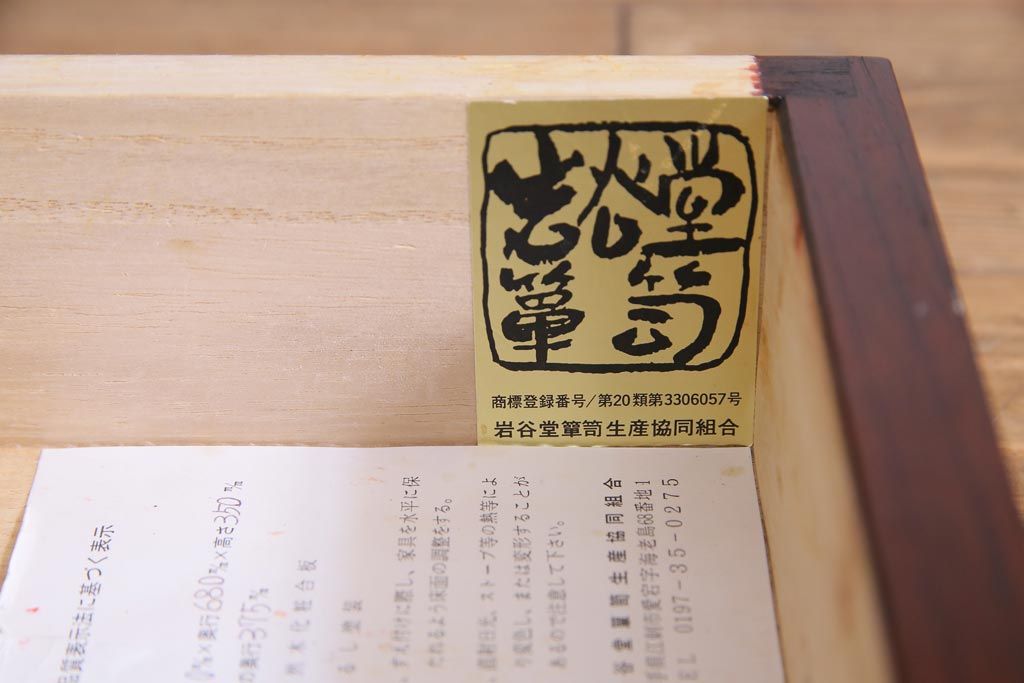 岩谷堂
箪笥
商標登録番号/第20類第3306057号
岩谷堂簞笥生産協同組合
品質表示法に基づく表示
0㎜×奥行680㎜×高さ350㎜
の奥行375㎜
然木化粧合板
るし塗装
ずえ付けに際し、家具を水平に保
たれるよう床面の調整をする。
直射日光、ストーブ等の熱等によ
り変色し、または変形することが
あるので注意して下さい。
谷堂簞笥生産協同組合
手県江刺市愛宕字海老島68番地1
EL 0197-35-0275